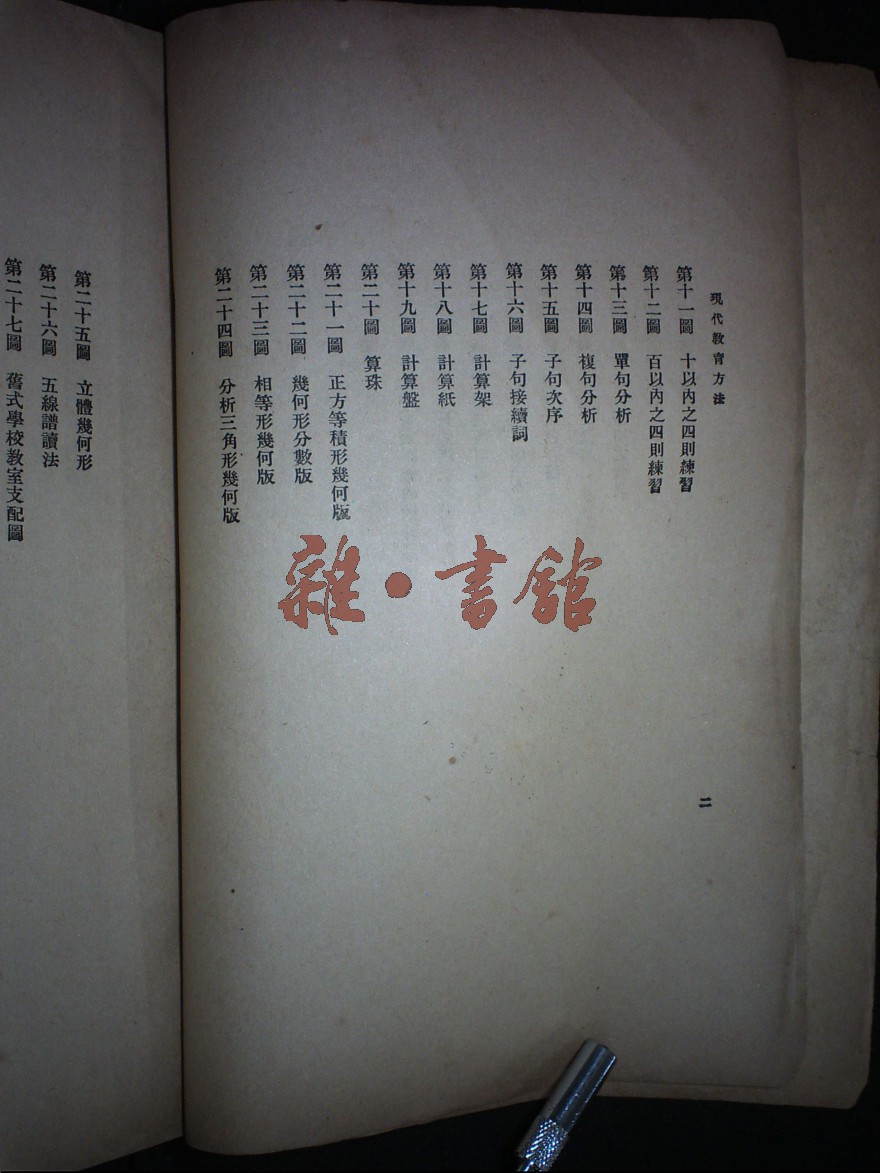 現代教育方法
第十一圖 十以內之四則練習
第十二圖 百以內之四則練習
第十三圖 單句分析
第十四圖 複句分析
第十五圖 子句次序
第十六圖 子句接續詞
第十七圖 計算架
第十八圖 計算紙
第十九圖 計算盤
第二十圖 算珠
第二十一圖 正方等積形幾何版
第二十二圖 幾何形分數版
第二十三圖 相等形幾何版
第二十四圖 分析三角形幾何版
二
第二十五圖 立體幾何形
第二十六圖 五線譜讀法
第二十七圖 舊式學校教室支配圖
雜·書館